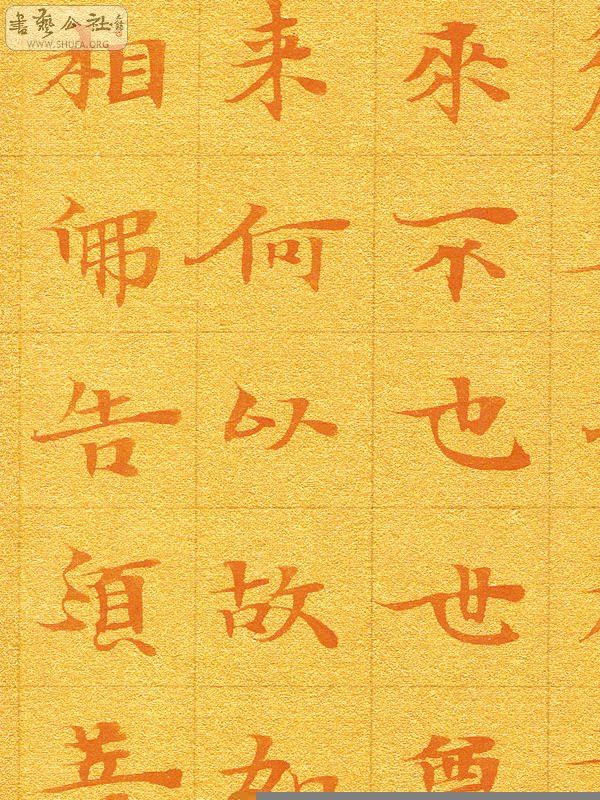 來不也世尊
来何以故如
相佛告須菩
書藝公社
WWW.SHUFA.ORG